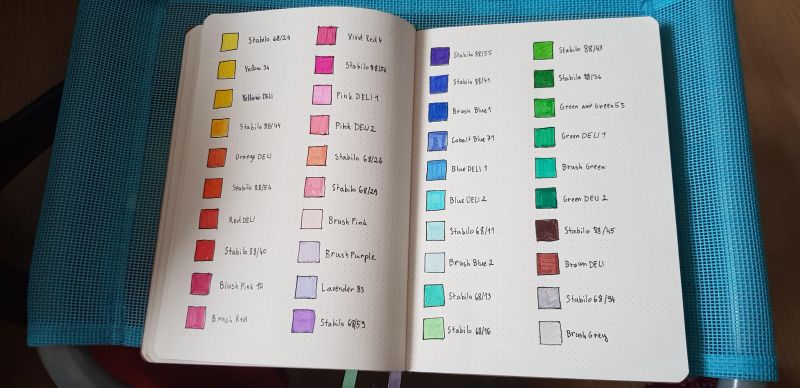 Stabilo 68/24
Yellow 34
Yellow DELI
Stabilo 88/44
Orange DELI
Stabilo 88/54
Red DELI
Stabilo 88/40
Blush Pink 10
Brush Red
Vivid Red 4
Stabilo 88/56
Pink DELI 1
Pink DELI 2
Stabilo 68/26
Stabilo 68/29
Brush Pink
Brush Purple
Lavender 83
Stabilo 68/59
Stabilo 88/55
Stabilo 88/41
Brush Blue 1
Cobalt Blue 71
Blue DELI 1
Blue DELI 2
Stabilo 68/11
Brush Blue 2
Stabilo 68/13
Stabilo 68/16
Stabilo 88/43
Stabilo 88/36
Green and Green 55
Green DELI 1
Brush Green
Green DELI 2
Stabilo 88/45
Brown DELI
Stabilo 68/94
Brush Grey